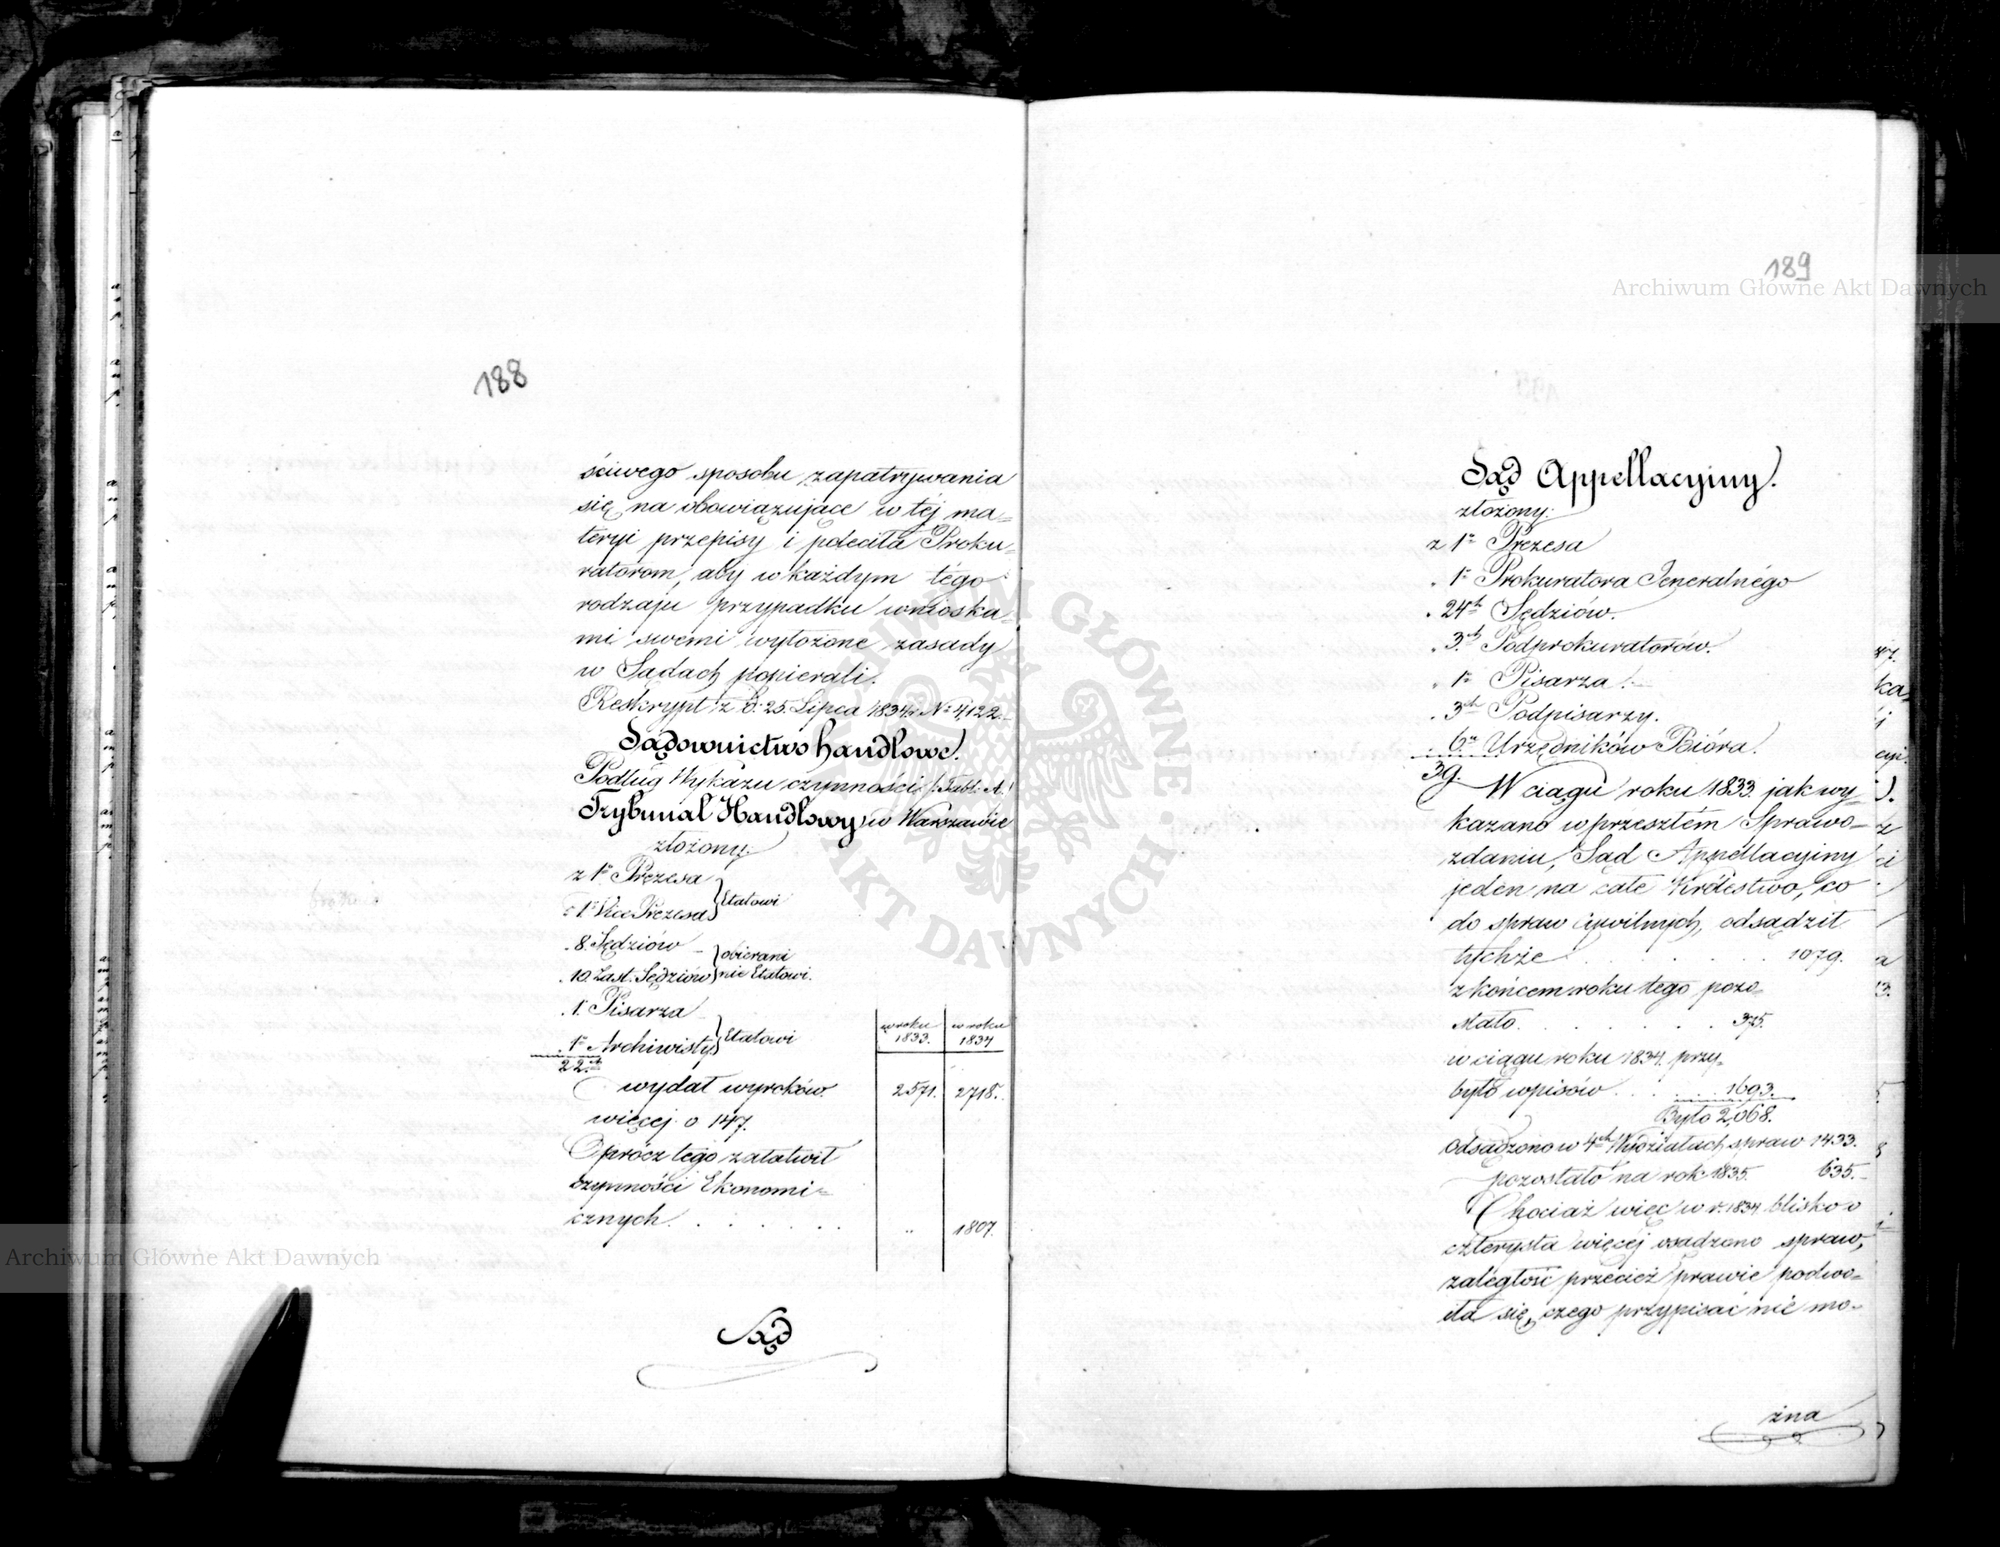 188
ściwego sposobu zapatrywania
się na obowiązujące w téj ma=
teryi przepisy i poleciła Proku=
ratorom, aby w każdym tego
rodzaju przypadku wnioska=
mi swemi wyłożone zasady
w Sądach popierali.
Reskrypt z d: 25. Lipca 1834 r. No 4,122.
Sądownictwo handlowe.
Podług Wykazu czynności /: Tabl: A.
Trybunał Handlowy w Warszawie
złożony:
z 1o Prezesa
" 1o Vice Prezesa } Etatowi
" 8. Sędziów
" 10. Zast: Sędziów } obierani nie Etatowi.
" 1. Pisarza
" 1o Archiwisty } Etatowi
22ch
w roku 1833. w roku 1834
wydał wyroków 2571. 2718.
więcej o 147.
Oprócz tego załatwił
czynności Ekonomi=
cznych . . . . . . " 1807.
Sąd
189
Sąd Appellacyiny.
złożony:
z 1o Prezesa
" 1o Prokuratora Jeneralnégo
" 24ch Sędziów.
" 3ch Podprokuratorów.
" 1o Pisarza.
" 3ch Podpisarzy.
" 6u Urzędników Bióra.
39. W ciągu roku 1833. jak wy=
kazano w przeszłém Sprawo=
zdaniu, Sąd Appellacyiny
jeden na całe Królestwo, co
do spraw cywilnych, odsądził
tychże . . . . . . . . 1079.
z końcem roku tego pozo=
stało . . . . . . . 375.
w ciągu roku 1834. przy=
było wpisów . . . . 1693.
Było 2,068.
Odsądzono w 4ch Wydziałach spraw 1433.
pozostało na rok 1835. 635.
Chociaż więc w r. 1834 blisko o
czterysta więcéj osądzono spraw,
zaległość przecież prawie podwo=
iła się, czego przypisać nie mo=
żna
Archiwum Główne Akt Dawnych
Archiwum Główne Akt Dawnych
ARCHIWUM GŁÓWNE AKT DAWNYCH